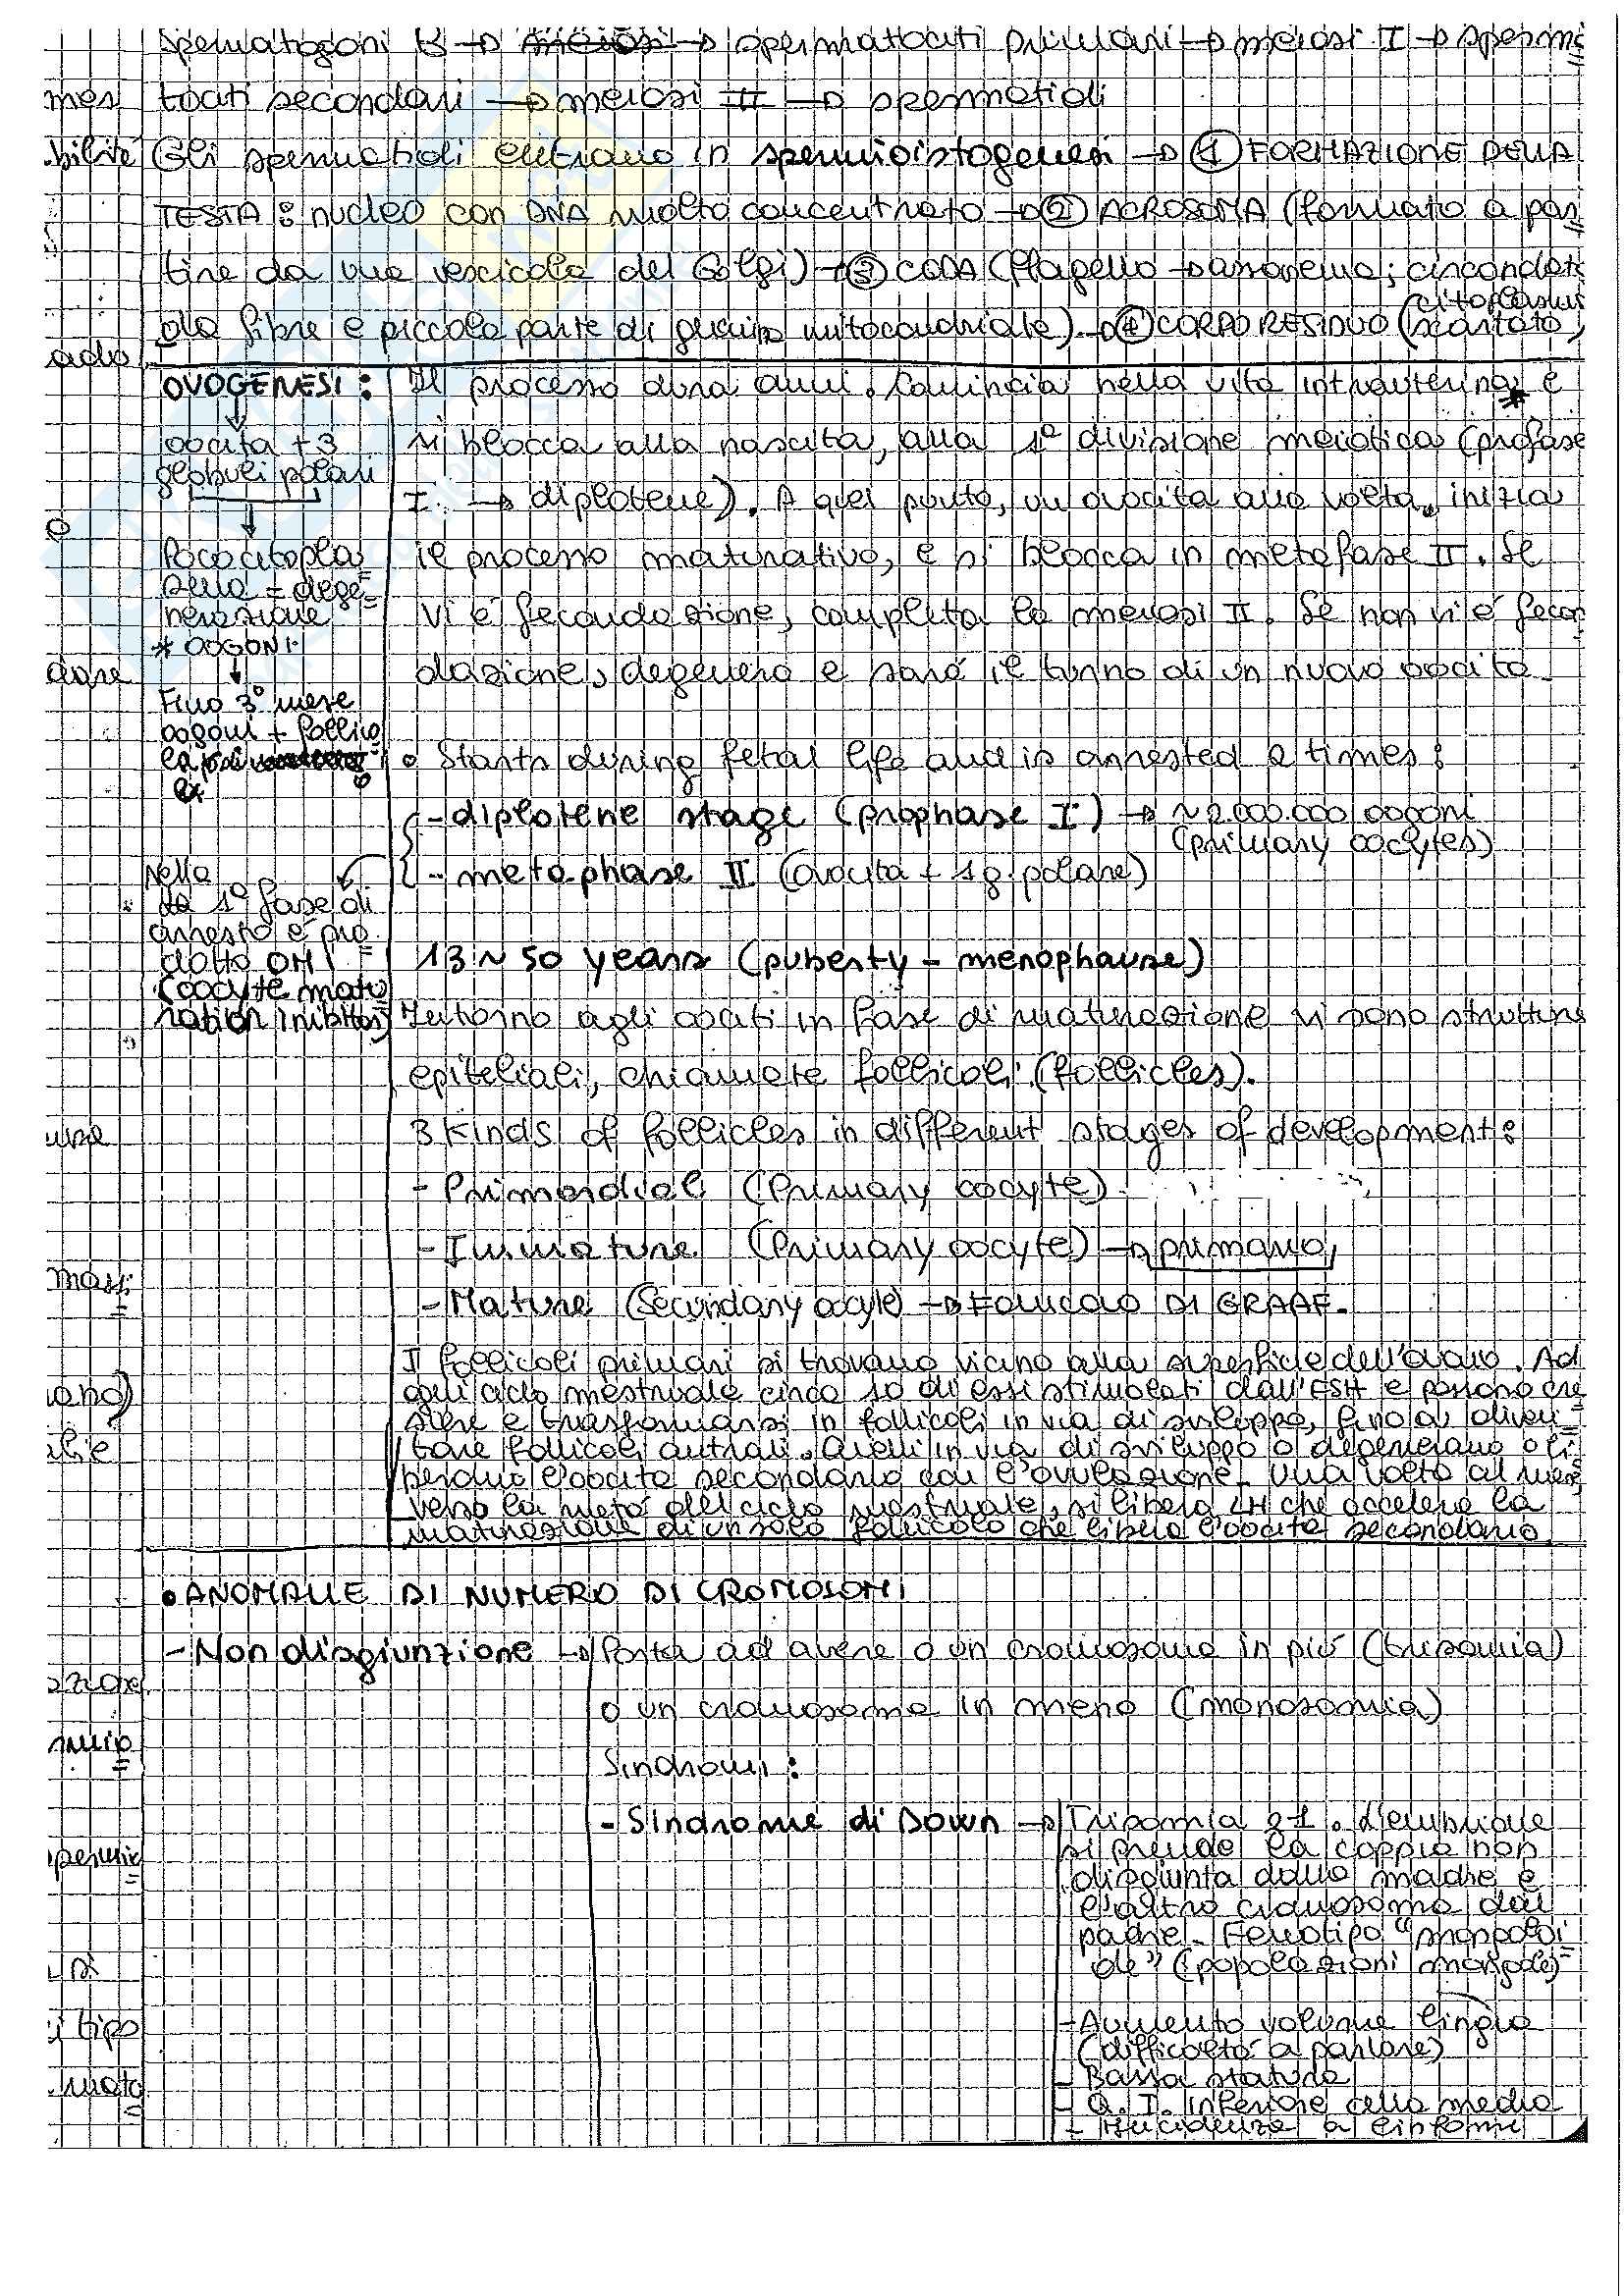 Spermatogoni B → meiosi → spermatociti primari → meiosi I → sperma
tociti secondari → meiosi II → spermatidi
Gli spermatidi entrano in spermioistogenesi → ① FORMAZIONE DELLA
TESTA: nucleo con DNA molto concentrato → ② ACROSOMA (formato a par
tire da una vescicola del Golgi) → ③ CODA (flagello → assonema; circondata
da fibre e piccola parte di guaina mitocondriale) → ④ CORPO RESIDUO (citoplasma
scartato)
mes
bilité
ado
OVOGENESI:
↓
oocita + 3
globuli polari
↓
Poco citopla
sma = dege
nerazione
* OOGONI
↓
Fino 3° mese
oogoni + follico
lari
Nella
1ª fase di
arresto è pro
dotto OMI
(oocyte matu
ration inhibitor)
Il processo dura anni. Comincia nella vita intrauterina* e
si blocca alla nascita, alla 1ª divisione meiotica (profase
I → diplotene). A quel punto, un ovocita alla volta, inizia
il processo maturativo, e si blocca in metafase II. Se
vi è fecondazione, completa la meiosi II. Se non vi è fecon
dazione, degenera e sarà il turno di un nuovo oocita
• Starts during fetal life and is arrested 2 times:
- diplotene stage (prophase I) → ~2.000.000 oogoni
(primary oocytes)
- metaphase II (ovocita + 1 g. polare)
13 ~ 50 years (puberty - menophause)
Intorno agli oociti in fase di maturazione vi sono strutture
epiteliali, chiamate follicoli (follicles).
3 kinds of follicles in different stages of development:
- Primordial (Primary oocyte)
- Immature (Primary oocyte) → primario
- Mature (Secundary oocyte) → FOLLICOLO DI GRAAF.
I follicoli primari si trovano vicino alla superficie dell'ovaio. Ad
ogni ciclo mestruale circa 10 di essi stimolati dall'FSH e possono cre
scere e trasformarsi in follicoli in via di sviluppo, fino a diven
tare follicoli antrali. Quelli in via di sviluppo o degenerano o li
berano l'oocita secondario con l'ovulazione. Una volta al mese,
verso la metà del ciclo mestruale, si libera LH che accelera la
maturazione di un solo follicolo che libera l'oocita secondario
• ANOMALIE DI NUMERO DI CROMOSOMI
- Non disgiunzione → Porta ad avere o un cromosoma in più (trisomia)
o un cromosoma in meno (monosomia)
Sindromi:
- Sindrome di Down → Trisomia 21. L'embrione
si prende la coppia non
disgiunta dalla madre e
l'altro cromosoma dal
padre. Fenotipo "mongoloi
de" (popolazioni mongole)
- Aumento volume lingua
(difficoltà a parlare)
- Bassa statura
- Q.I. inferiore alla media
- Incidenza a linfomi